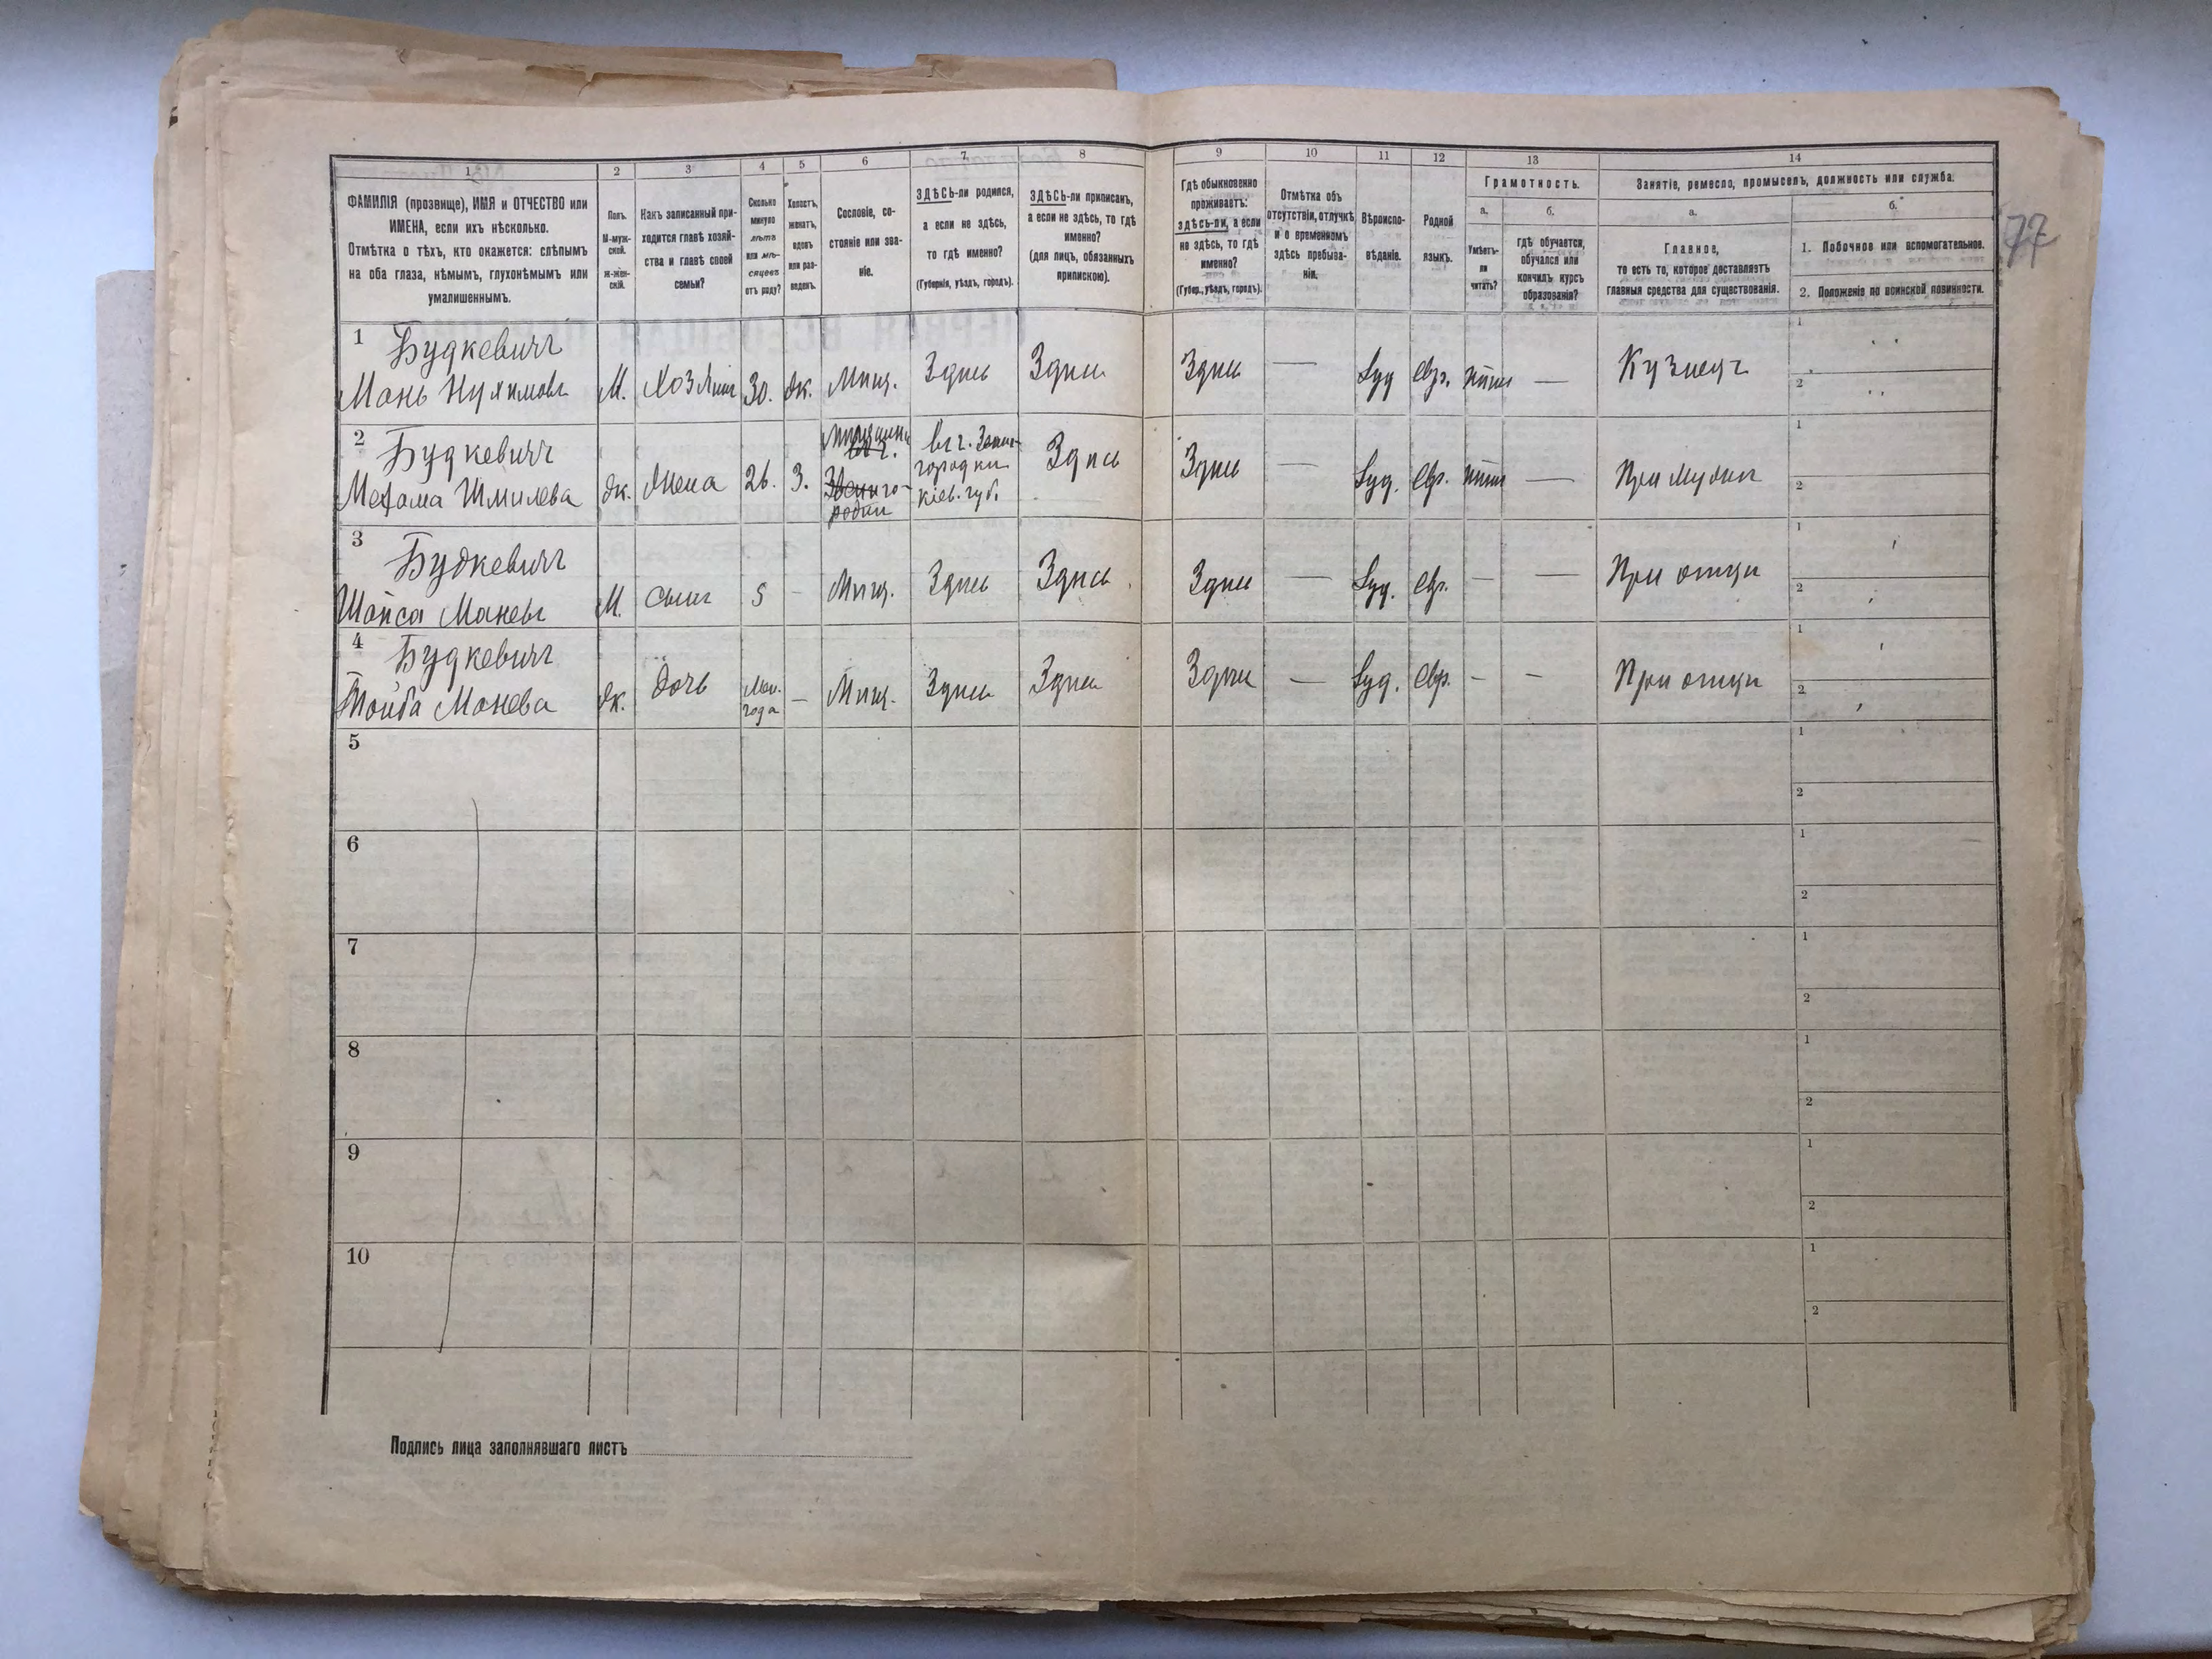 1 2 3 4 5 6 7 8 9 10 11 12 13 14
ФАМИЛІЯ (прозвище), ИМЯ и ОТЧЕСТВО или
ИМЕНА, если ихъ нѣсколько.
Отмѣтка о тѣхъ, кто окажется: слѣпымъ
на оба глаза, нѣмымъ, глухонѣмымъ или
умалишеннымъ.
Полъ.
М-муж-
ской.
Ж-жен-
скій.
Какъ записанный при-
ходится главѣ хозяй-
ства и главѣ своей
семьи?
Сколько
минуло
лѣтъ
или мѣ-
сяцевъ
отъ роду?
Холостъ,
женатъ,
вдовъ
или раз-
веденъ.
Сословіе, со-
стояніе или зва-
ніе.
ЗДѢСЬ-ли родился,
а если не здѣсь,
то гдѣ именно?
(Губернія, уѣздъ, городъ).
ЗДѢСЬ-ли приписанъ,
а если не здѣсь, то гдѣ
именно?
(для лицъ, обязанныхъ
припискою).
Гдѣ обыкновенно
проживаетъ:
здѣсь-ли, а если
не здѣсь, то гдѣ
именно?
(Губер., уѣздъ, городъ).
Отмѣтка объ
отсутствіи, отлучкѣ
и о временномъ
здѣсь пребыва-
ніи.
Вѣроиспо-
вѣданіе.
Родной
языкъ.
Грамотность.
а.
Умѣетъ-
ли
читать?
б.
гдѣ обучается,
обучался или
кончилъ курсъ
образованія?
Занятіе, ремесло, промыселъ, должность или служба.
а.
Главное,
то есть то, которое доставляетъ
главныя средства для существованія.
б.
1. Побочное или вспомогательное.
2. Положеніе по воинской повинности.
77
1 Будкевичъ
Мань Нухимовъ М. Хозяинъ 30. Ж. Мищ. Здись Здись Здись — Іуд Евр. — Кузнецъ
1
2
2 Будкевичъ
Шмилева Ж. Жена 26. З. Здись Здись — Іуд. Евр. — При мужи
въ г. Звени-
городки
кіев. губ.
1
2
3 Будкевичъ
Шойса Маневъ М. Сынъ 5 - Мищ. Здись Здись Здись — Іуд. Евр. — — При отци
1
2
4 Будкевичъ
Тойба Манева Ж. Дочь Мен. года — Мищ. Здись Здись Здись — Іуд. Евр. - - При отци
1
2
5 1
2
6 1
2
7 1
2
8 1
2
9 1
2
10 1
2
Подпись лица заполнявшаго листъ